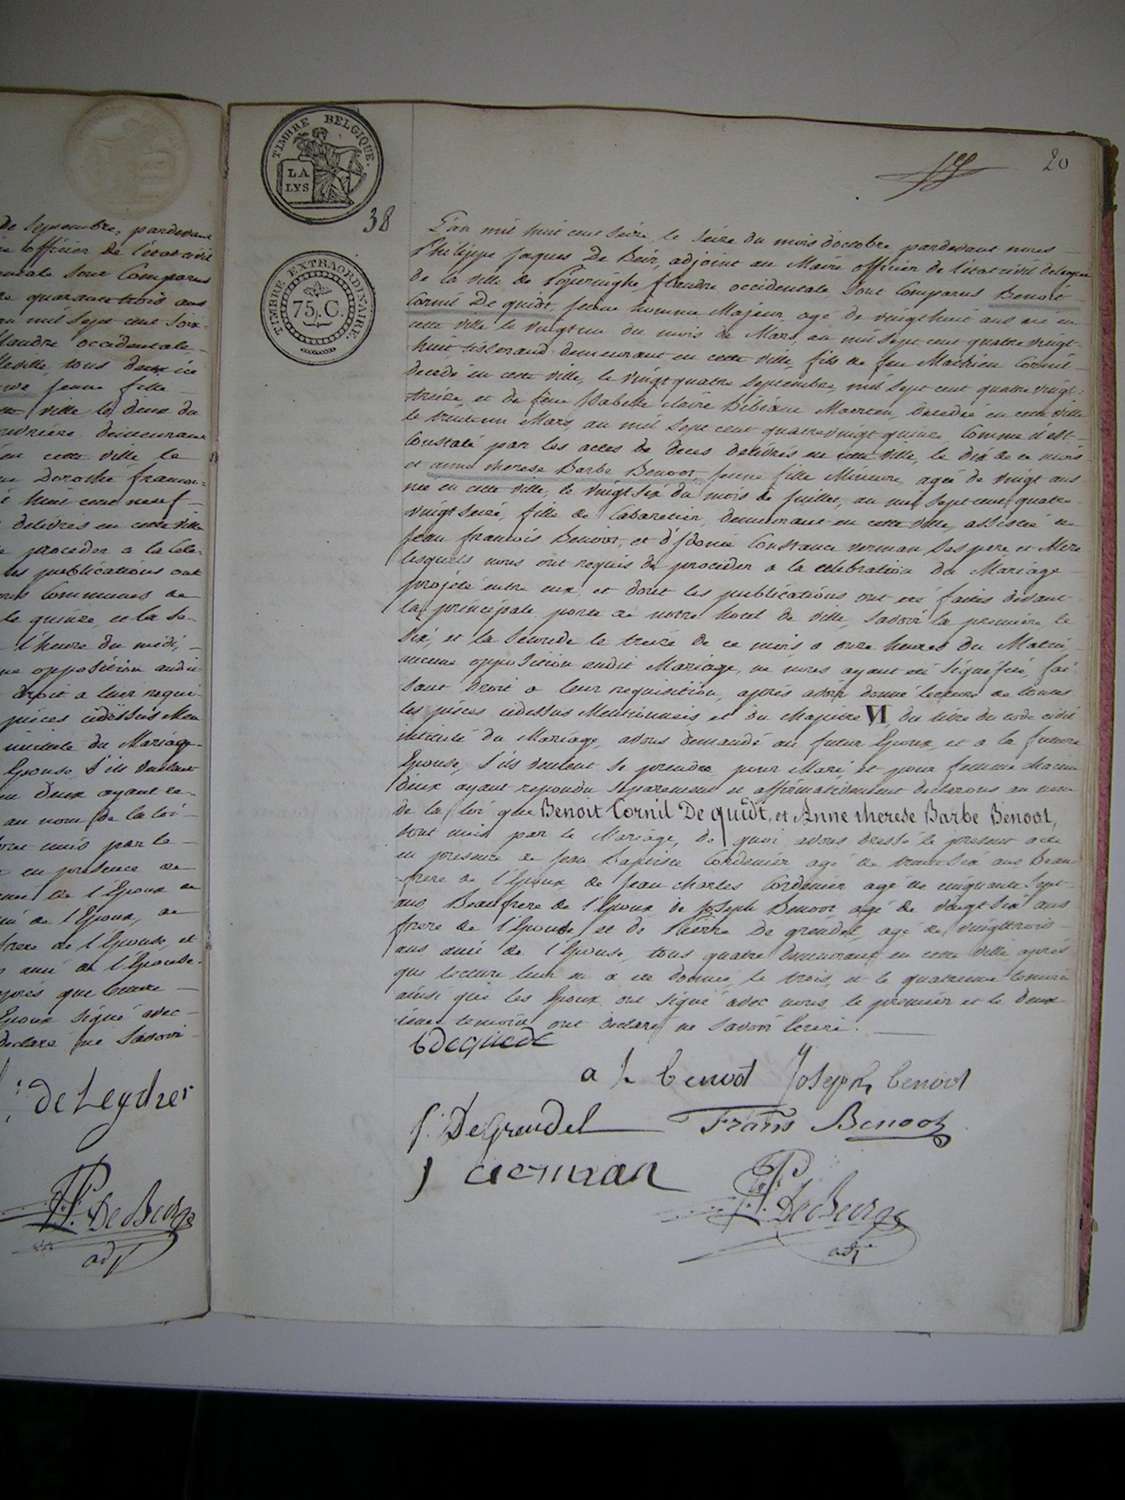 TIMBRE BELGIQUE.
LA
LYS
TIMBRE EXTRAORDINAIRE.
75, C.
38
20
L'an mil huit cent seize, le seize du mois d'octobre, pardevant nous
Philippe Jaques De Beir, adjoint au Maire officier de l'etat civil delegué
de la ville de Poperinghe flandre occidentale, sont comparus Benoit
Cornil De quidt, jeune homme Majeur agé de vingt huit ans né en
cette ville le vingt un du mois de Mars, an mil sept cent quatre vingt
huit tisserand demeurant en cette ville, fils de feu Mathieu Cornil
decedé en cette ville, le vingt quatre Septembre, mil sept cent quatre vingt
treize, et de feue Isabelle Claire decedée en cette ville
le trente un Mars, an mil sept cent quatre vingt quinze, comme il est
constaté par les actes de deces delivrés en cette ville, le dix de ce mois
et anne therese Barbe Benoot, jeune fille Mineure, agée de vingt ans
née en cette ville, le vingt six du mois de Juillet, an mil sept cent quatre
vingt seize, fille de Cabaretier, demeurant en cette ville, assistée de
Jean francois Benoot, et d'Idonie Constance verman ses pere et Mere
lesquels nous ont requis de proceder a la celebration du Mariage
projeté entre eux, et dont les publications ont été faites devant
la principale porte de notre hotel de ville, savoir la premiere le
six, et la seconde le treize de ce mois a onze heures du Matin
aucune opposition audit Mariage, ne nous ayant été signifiée, fai-
sant droit a leur requisition, après avoir donné lecture de toutes
les pieces cidessus Mentionnées, et du chapitre VI du titre du code civil
intitulé du Mariage, avons demandé au futur Epoux, et a la future
Epouse, s'ils veulent se prendre pour Mari et pour femme, chacun
d'eux ayant repondu separement et affirmativement declarons au nom
de la loi que Benoit Cornil De quidt, et Anne therese Barbe Benoot,
sont unis par le Mariage, de quoi avons dressé le present acte
en presence de Jean Baptiste Cordenier agé de trente six ans Beau
frere de l'Epoux, de Jean Charles Cordenier agé de cinquante sept
ans, Beaufrere de l'Epoux de Joseph Benoot agé de vingt six ans
frere de l'Epouse, et de Pierre De grendel, agé de vingt trois
ans ami de l'Epouse, tous quatre demeurant en cette ville après
que lecture leur en a été donnée, le trois, et le quatrieme temoin
ainsi que les Epoux ont signé avec nous le premier et le deux
ieme temoin ont declaré ne savoir Ecrire.
b dequidt
a t benoot Joseph benoot
P. DeGrendel Frans Benoot
J verman
P. J. De Beir
adj.
de septembre, pardevant
officier de l'etat civil
sont comparus
quarante trois ans
an mil sept cent soix-
flandre occidentale
jeune fille
ville le deux du
demeurant
en cette ville le
Dorothé francoi-
huit cent neuf
delivrés en cette ville
proceder a la Cele-
les publications ont
Communes de
le quinze, et la se-
l'heure du midi,
opposition audit
droit a leur requi-
pieces cidessus Men
intitulé du Mariage
Epouse, s'ils veulent
deux ayant re-
au nom de la loi
unis par le
en presence de
de l'Epoux
ami de l'Epoux, de
frere de l'Epouse, et
ami de l'Epouse
après que lecture
Epoux signé avec
declaré ne savoir
de Leycher
P. J. De Beir
adj